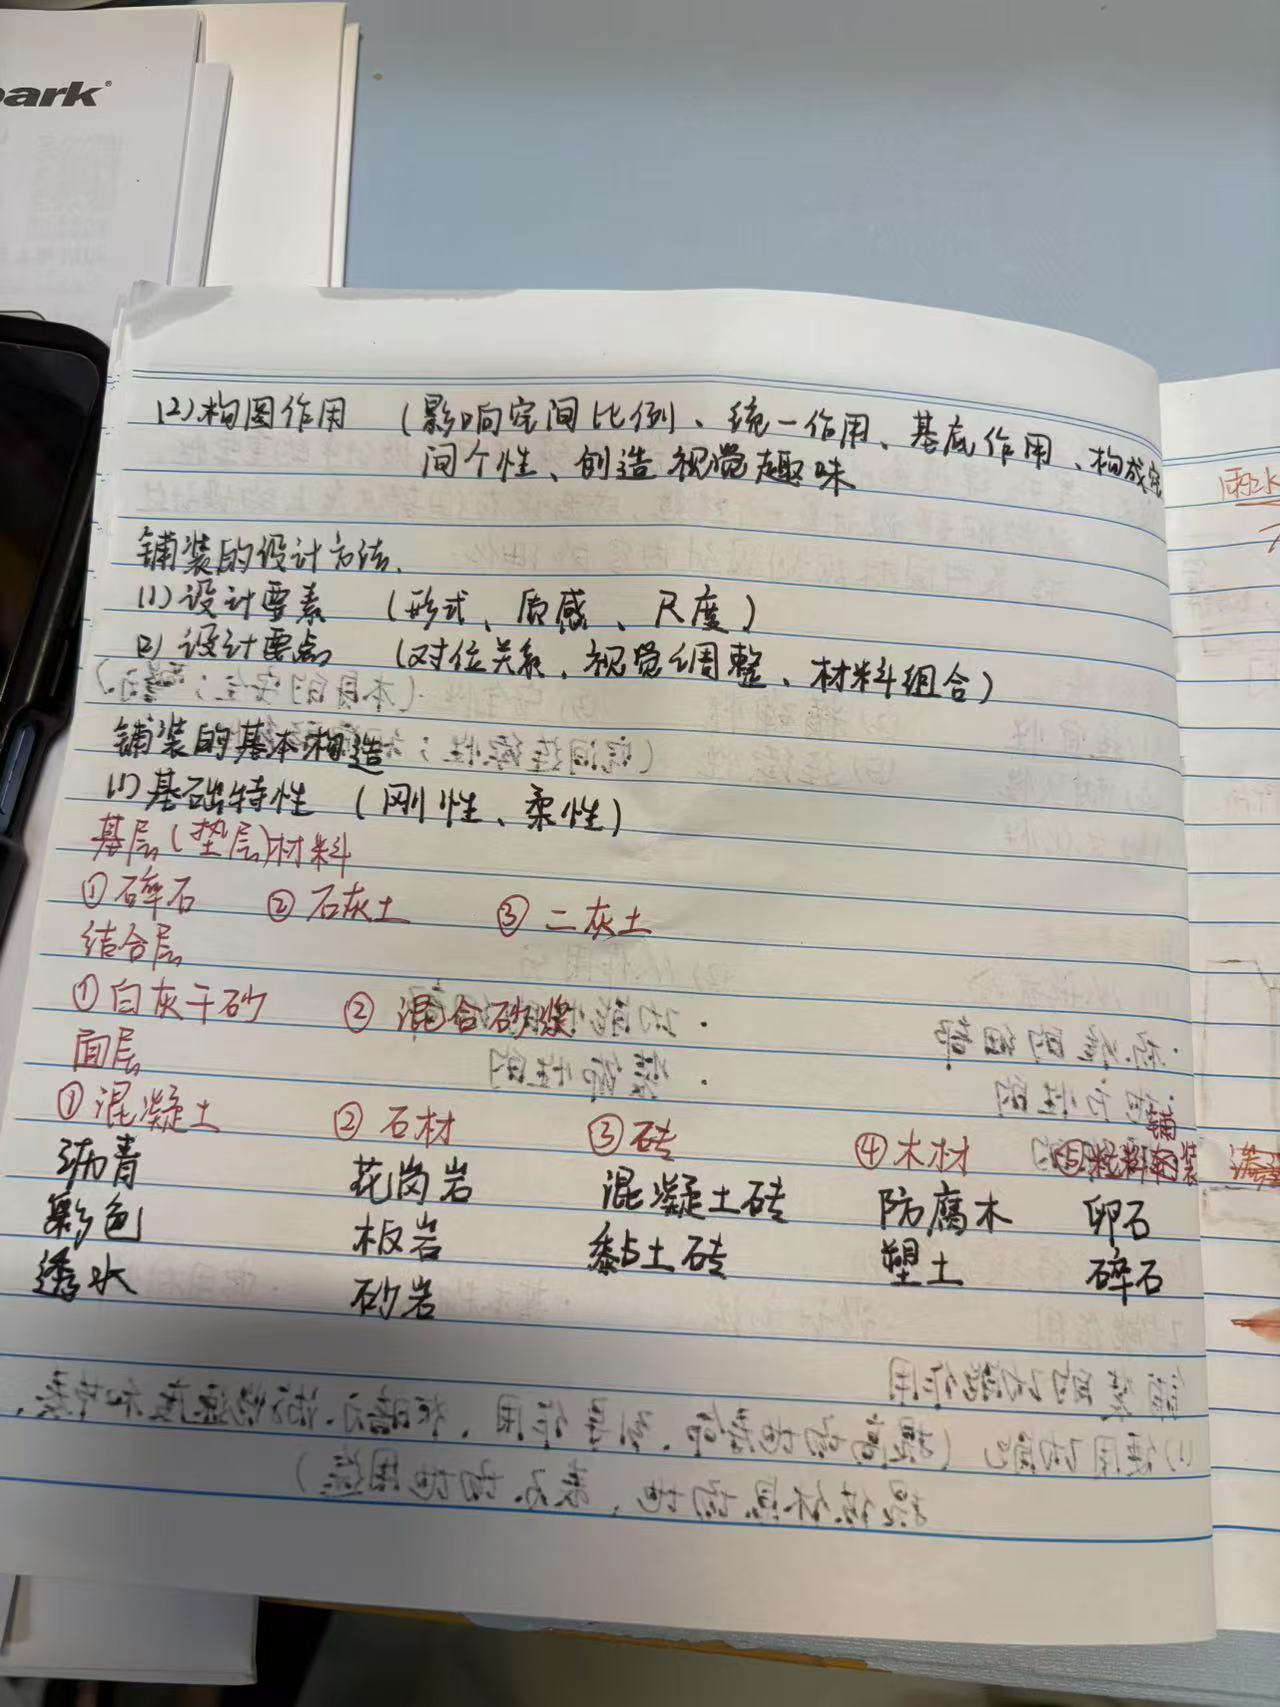 ark
(2)构图作用 (影响空间比例、统一作用、基底作用、构成空
间个性、创造视觉趣味
铺装的设计方法.
(1)设计要素 (形式、质感、尺度)
(2)设计要点 (对位关系、视觉调整、材料组合)
铺装的基本构造
(1)基础特性 (刚性、柔性)
基层(垫层)材料
①碎石 ②石灰土 ③二灰土
结合层
①白灰干砂 ②混合砂浆
面层
①混凝土 ②石材 ③砖 ④木材 ⑤粒料铺装
沥青 花岗岩 混凝土砖 防腐木 卵石
彩色 板岩 黏土砖 塑土 碎石
透水 砂岩
雨水